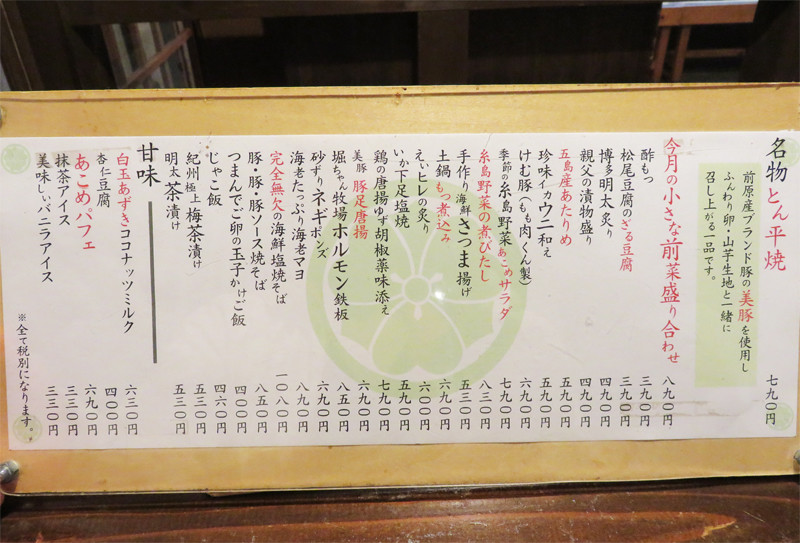 名物とん平焼 七九〇円
前原産ブランド豚の美豚を使用し
ふんわり卵・山芋生地と一緒に
召し上がる一品です。
今月の小さな前菜盛り合わせ 八九〇円
酢もつ 三九〇円
松尾豆腐のざる豆腐 三九〇円
博多明太炙り 四九〇円
親父の漬物盛り 四九〇円
五島産あたりめ 五九〇円
珍味イカウニ和え 五九〇円
けむ豚(もも肉くん製) 六九〇円
季節の糸島野菜あこめサラダ 七九〇円
糸島野菜の煮びたし 八三〇円
手作り海鮮さつま揚げ 五三〇円
土鍋もつ煮込み 六九〇円
えいヒレの炙り 六〇〇円
いか下足塩焼 五九〇円
鶏の唐揚ゆず胡椒薬味添え 七九〇円
美豚 豚足唐揚 六九〇円
堀ちゃん牧場ホルモン鉄板 八五〇円
砂ずりネギポンズ 六九〇円
海老たっぷり海老マヨ 八九〇円
完全無欠の海鮮塩焼そば 一〇八〇円
豚・豚・豚ソース焼そば 八五〇円
つまんでご卵の玉子かけご飯 四〇〇円
じゃこ飯 四六〇円
紀州極上梅茶漬け 五三〇円
明太茶漬け 五三〇円
甘味
白玉あずきココナッツミルク 六三〇円
杏仁豆腐 四〇〇円
あこめパフェ 六九〇円
抹茶アイス 三三〇円
美味しぃバニラアイス 三三〇円
※全て税別になります。